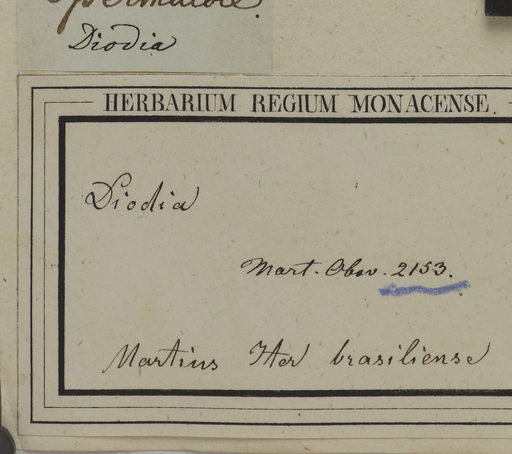 Diodia
HERBARIUM REGIUM MONACENSE.
Diodia
Mart. Obsv. 2153.
Martius Iter brasiliense